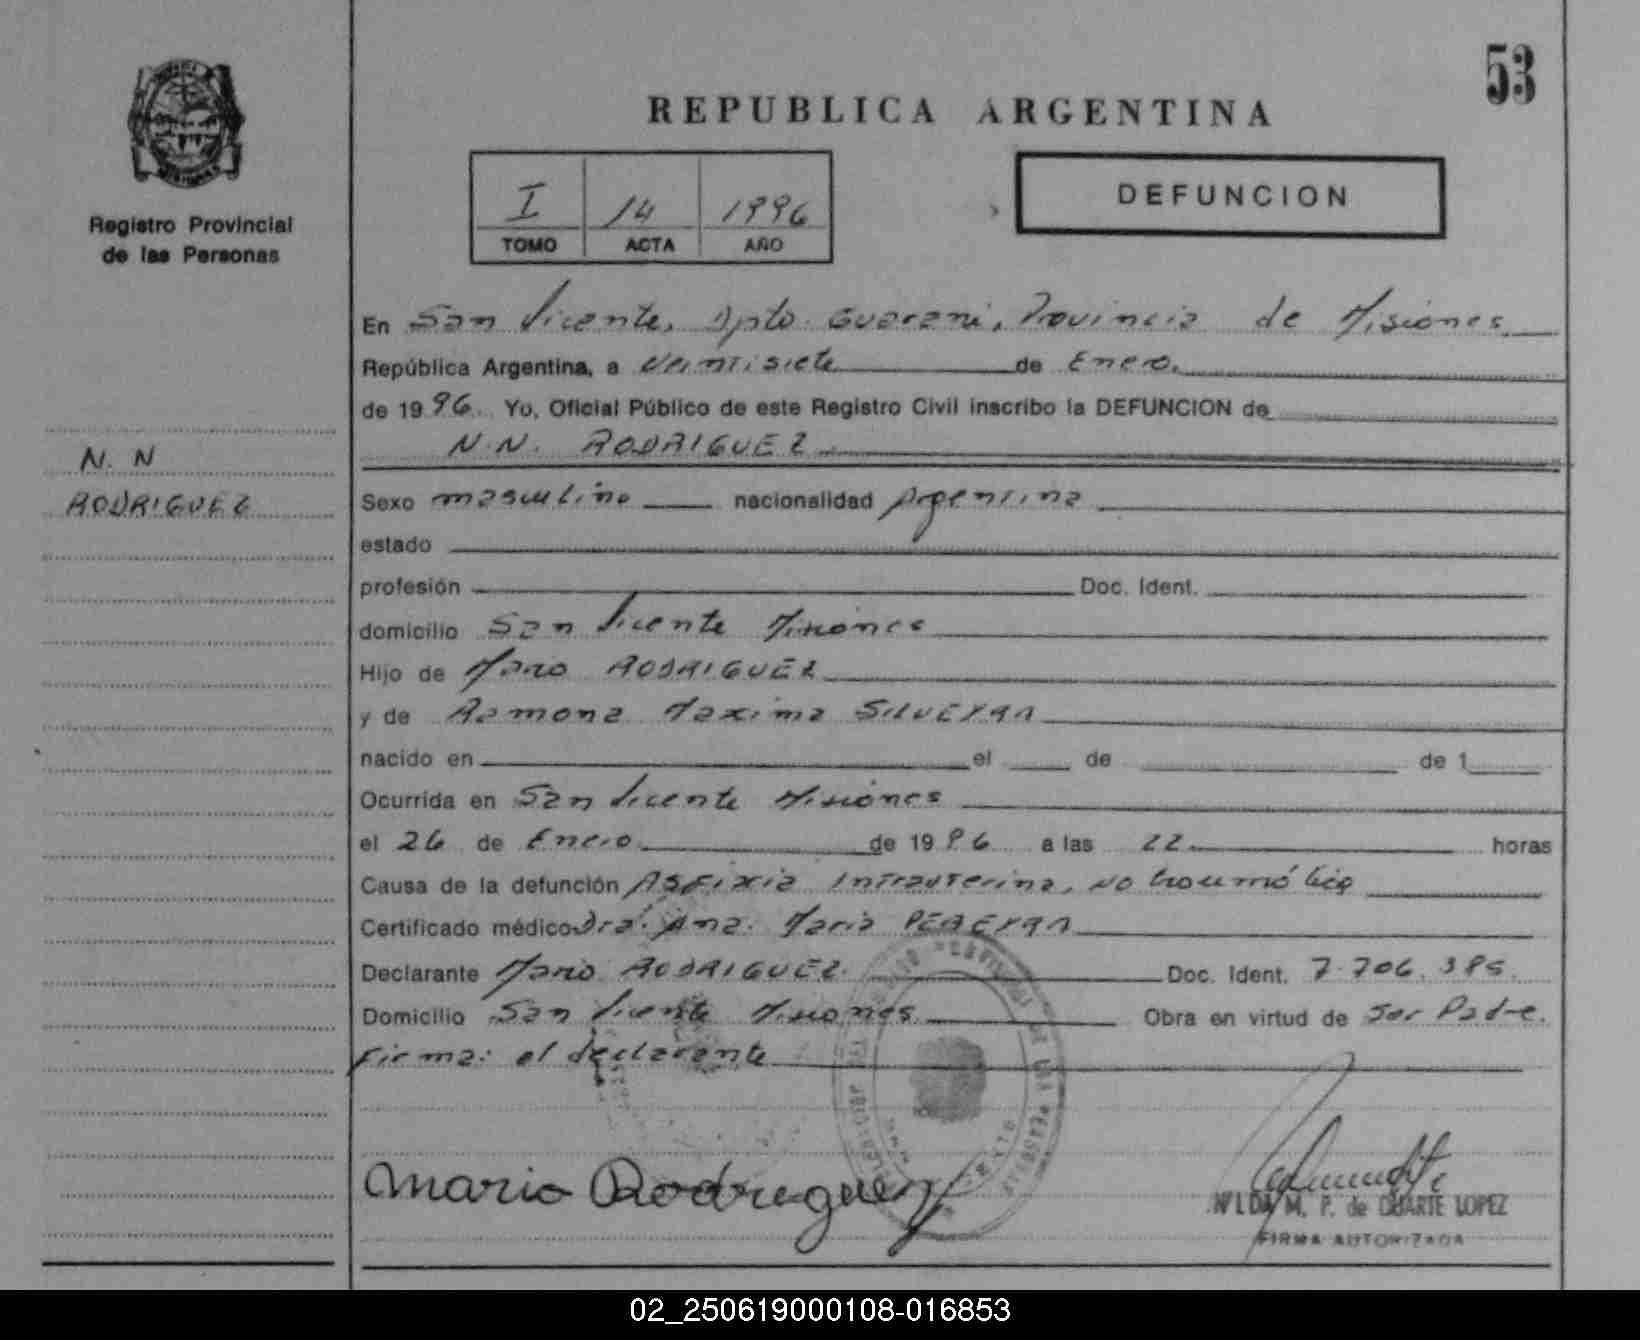 53
REPUBLICA ARGENTINA
Registro Provincial
de las Personas
I 14 1996
TOMO ACTA AÑO
DEFUNCION
En San Vicente, Dpto. Guarani, Provincia de Misiones
República Argentina, a veintisiete de Enero.
de 1996 Yo, Oficial Público de este Registro Civil inscribo la DEFUNCION de
N.N. RODRIGUEZ
N. N
RODRIGUEZ
Sexo masculino nacionalidad Argentina
estado
profesión Doc. Ident.
domicilio San Vicente Misiones
Hijo de Mario RODRIGUEZ
y de Ramona Maxima SILVEYRA
nacido en el de de 1
Ocurrida en San Vicente Misiones
el 26 de Enero de 1996 a las 22 horas
Causa de la defunción Asfixia Intrauterina, no traumática
Certificado médico Dra. Ana Maria PEREYRA
Declarante Mario RODRIGUEZ Doc. Ident. 7.706.385
Domicilio San Vicente Misiones Obra en virtud de Ser Padre.
Firma: el declarante
Mario Rodriguez
NILDA M. P. de DUARTE LOPEZ
FIRMA AUTORIZADA
02_250619000108-016853